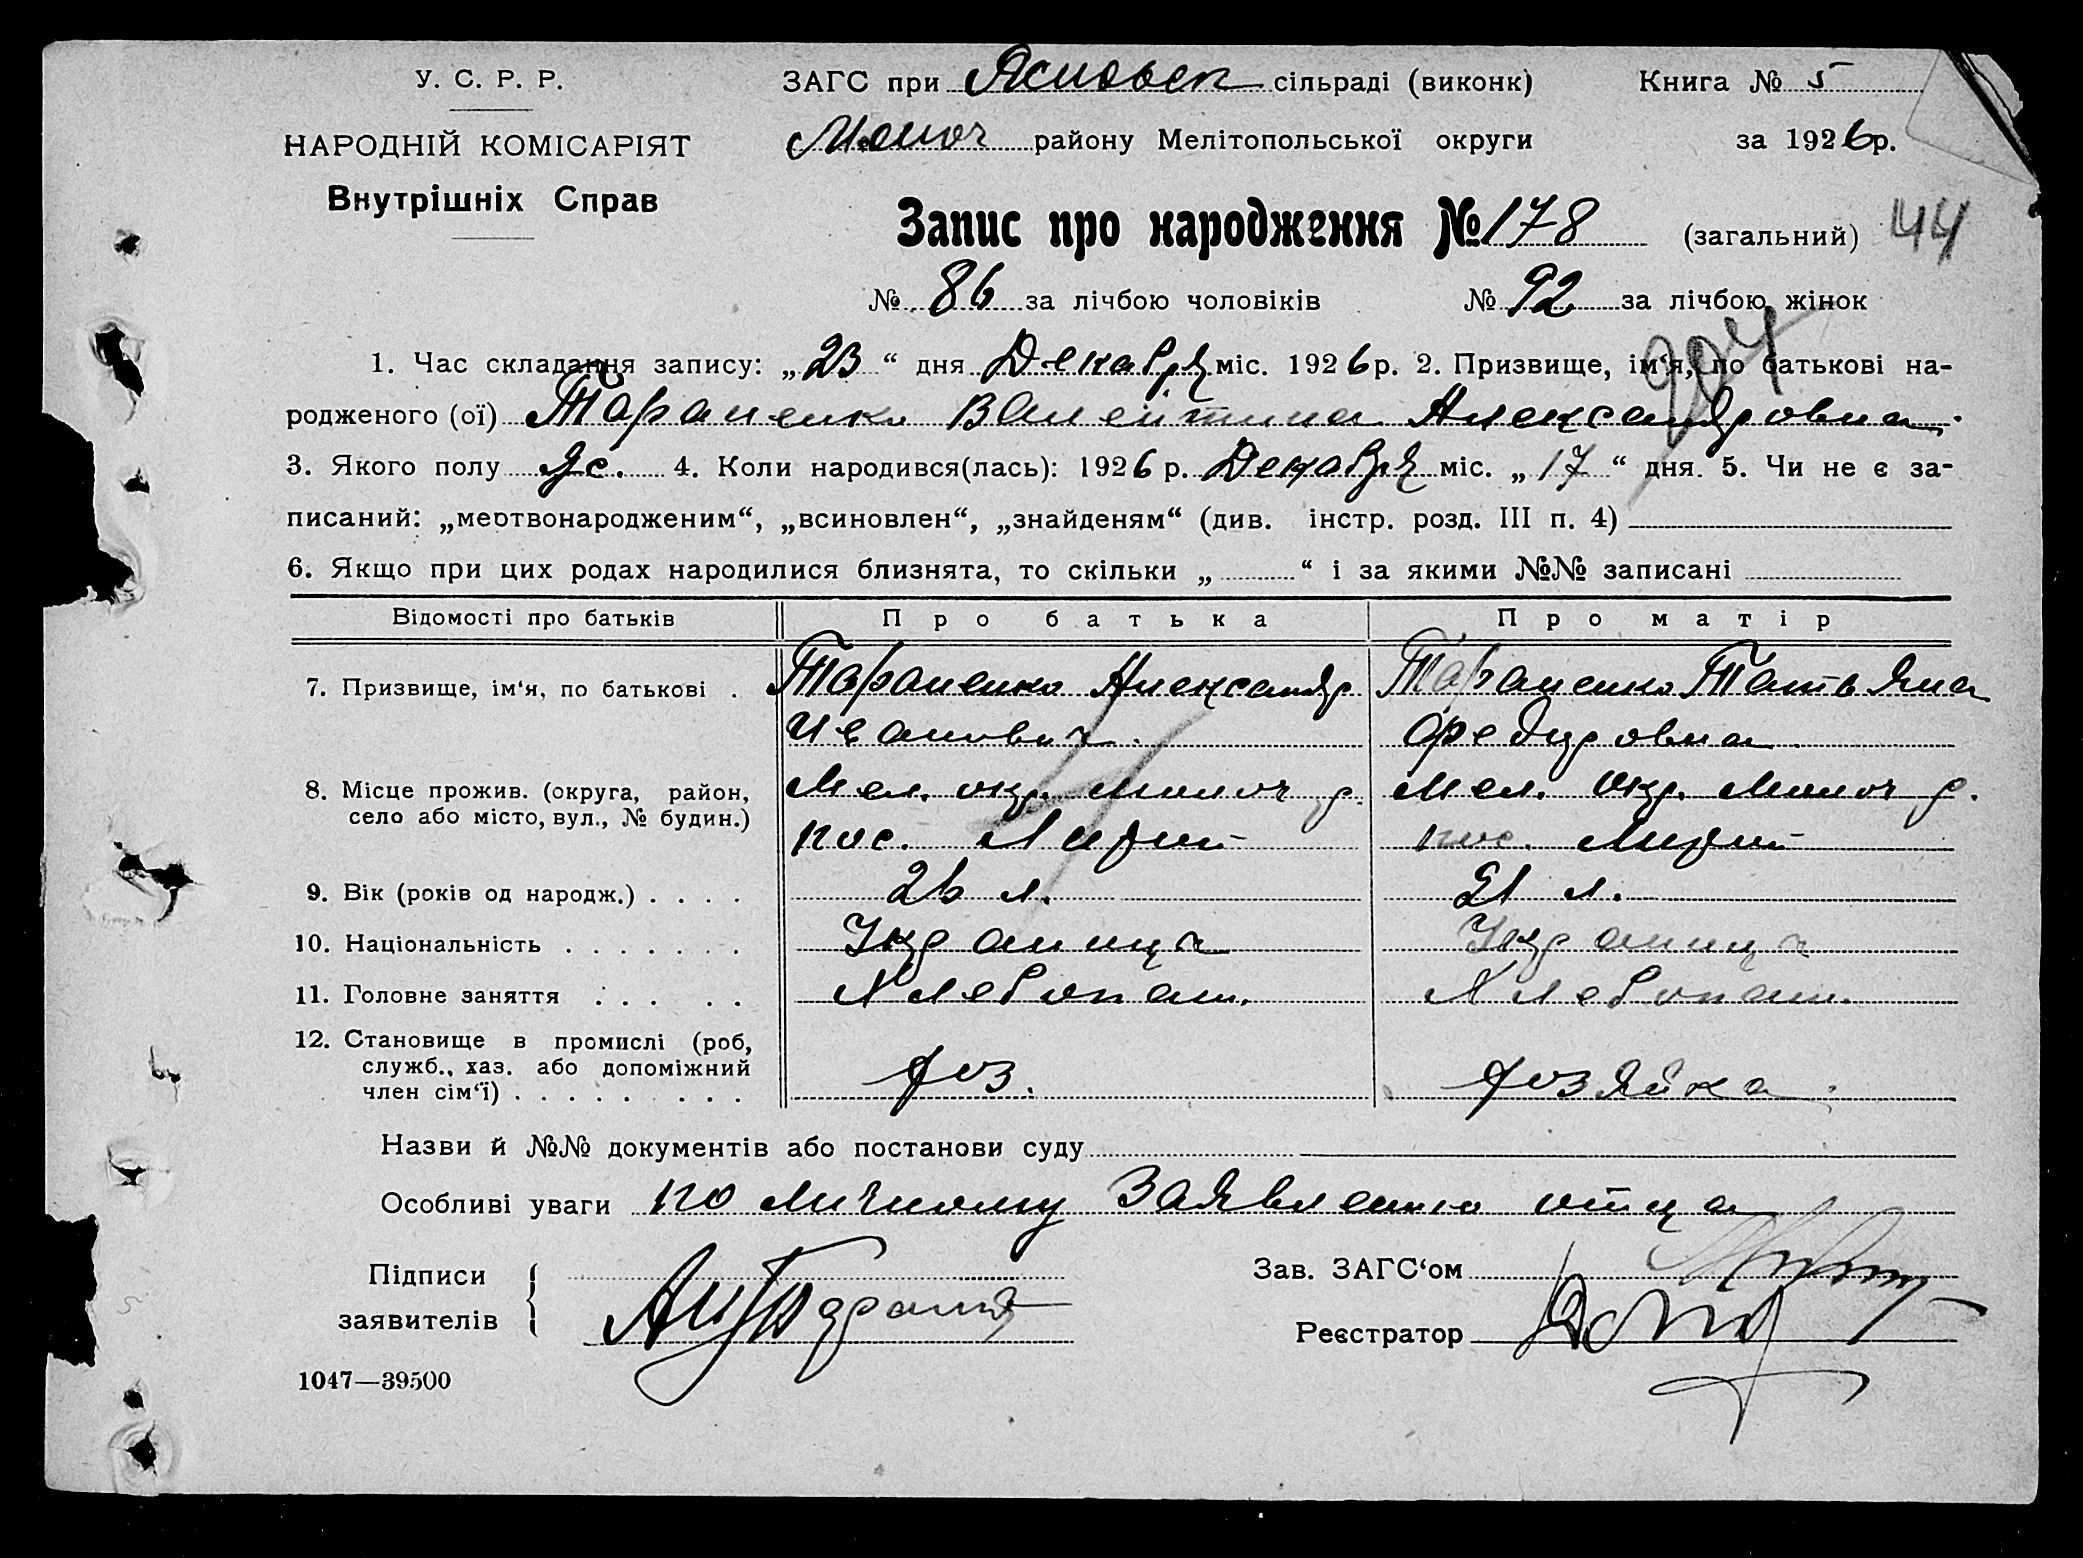 У. С. Р. Р.
НАРОДНІЙ КОМІСАРІЯТ
Внутрішніх Справ
ЗАГС при сільраді (виконк)
Молоч району Мелітопольської округи
Книга № 5
за 1926р.
Запис про народження № 178 (загальний) 44
№ 86 за лічбою чоловіків № 92 за лічбою жінок
204
1. Час складання запису: „23“ дня Декабря міс. 1926р. 2. Призвище, ім‘я, по батькові на-
родженого (ої) Тараненко Валентина Александровна.
3. Якого полу жс. 4. Коли народився(лась): 1926 р. Декабря міс. „17“ дня. 5. Чи не є за-
писаний: „мертвонародженим“, „всиновлен“, „знайденям“ (див. інстр. розд. III п. 4)
6. Якщо при цих родах народилися близнята, то скільки „ “ і за якими №№ записані
Відомості про батьків Про батька Про матір
7. Призвище, ім‘я, по батькові . Тараненко Александр Тараненко Татьяна
Иванович. Федоровна
8. Місце прожив. (округа, район, Мел. окр. Молоч р. Мел. Окр. Молоч р.
село або місто, вул., № будин.) пос.  пос.
9. Вік (років од народж.) . . . . 26 л. 21 л.
10. Національність . . . . . . . Украинц Украинц
11. Головне заняття . . . . . Хлебопаш. Хлебопаш.
12. Становище в промислі (роб,
служб., хаз. або допоміжний хоз. хозяйка
член сім‘ї) . . . . . . . . .
Назви й №№ документів або постанови суду
Особливі уваги по личному заявлению отца
Підписи
заявителів
Зав. ЗАГС‘ом
Реєстратор
1047—39500